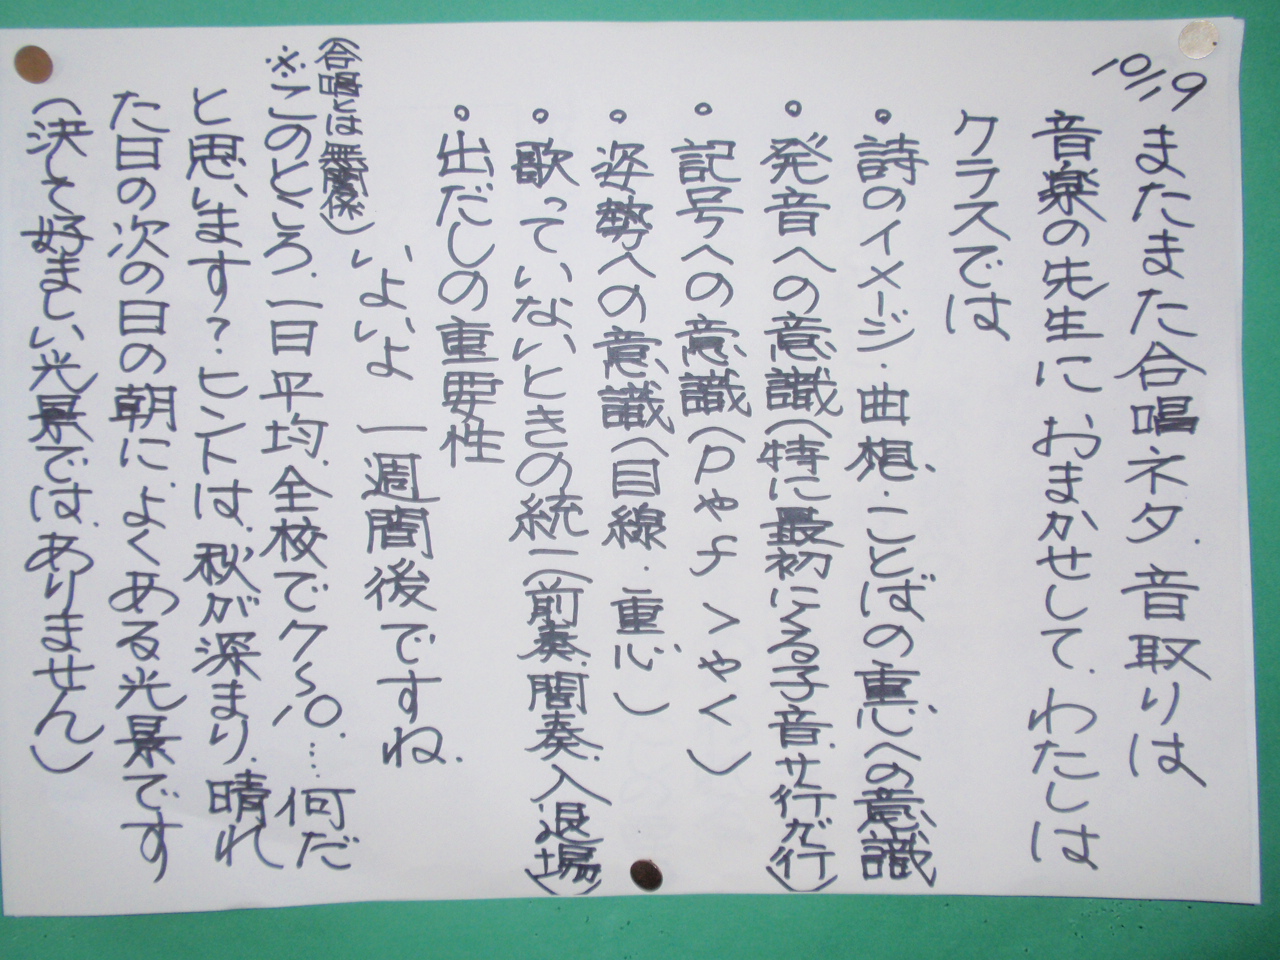 10/19
またまた合唱ネタ.音取りは
音楽の先生に おまかせして.わたしは
クラスでは
・詩のイメージ.曲想.ことばの重心への意識
・発音への意識(特に最初にくる子音.サ行.カ行)
・記号への意識(pやf >や<)
・姿勢への意識(目線.重心)
・歌っていないときの統一(前奏.間奏.入退場)
・出だしの重要性
いよいよ 一週間後ですね.
(合唱とは無関係)
※このところ.一日平均.全校で7〜10.…何だ
と思います?.ヒントは.秋が深まり.晴れ
た日の次の日の朝に.よくある光景です
(決して好ましい光景では.ありません)